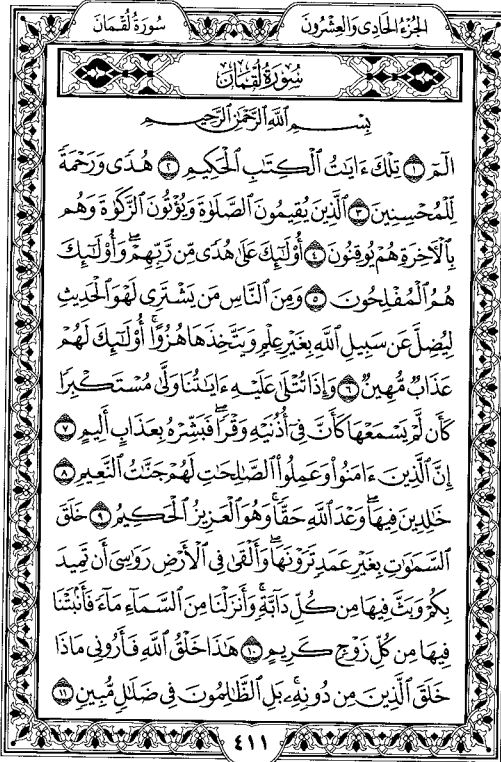 الجُزْءُ الحَادِى وَالعِشْرُونَ
سُورَةُ لُقْمَان
سُورَةُ لُقْمَان
بِسْمِ ٱللَّهِ ٱلرَّحْمَٰنِ ٱلرَّحِيمِ
الٓمٓ ١ تِلْكَ ءَايَٰتُ ٱلْكِتَٰبِ ٱلْحَكِيمِ ٢ هُدًى وَرَحْمَةً
لِّلْمُحْسِنِينَ ٣ ٱلَّذِينَ يُقِيمُونَ ٱلصَّلَوٰةَ وَيُؤْتُونَ ٱلزَّكَوٰةَ وَهُم
بِٱلْءَاخِرَةِ هُمْ يُوقِنُونَ ٤ أُو۟لَٰٓئِكَ عَلَىٰ هُدًى مِّن رَّبِّهِمْ ۖ وَأُو۟لَٰٓئِكَ
هُمُ ٱلْمُفْلِحُونَ ٥ وَمِنَ ٱلنَّاسِ مَن يَشْتَرِى لَهْوَ ٱلْحَدِيثِ
لِيُضِلَّ عَن سَبِيلِ ٱللَّهِ بِغَيْرِ عِلْمٍ وَيَتَّخِذَهَا هُزُوًا ۚ أُو۟لَٰٓئِكَ لَهُمْ
عَذَابٌ مُّهِينٌ ٦ وَإِذَا تُتْلَىٰ عَلَيْهِ ءَايَٰتُنَا وَلَّىٰ مُسْتَكْبِرًا
كَأَن لَّمْ يَسْمَعْهَا كَأَنَّ فِىٓ أُذُنَيْهِ وَقْرًا ۖ فَبَشِّرْهُ بِعَذَابٍ أَلِيمٍ ٧
إِنَّ ٱلَّذِينَ ءَامَنُوا۟ وَعَمِلُوا۟ ٱلصَّٰلِحَٰتِ لَهُمْ جَنَّٰتُ ٱلنَّعِيمِ ٨
خَٰلِدِينَ فِيهَا ۖ وَعْدَ ٱللَّهِ حَقًّا ۚ وَهُوَ ٱلْعَزِيزُ ٱلْحَكِيمُ ٩ خَلَقَ
ٱلسَّمَٰوَٰتِ بِغَيْرِ عَمَدٍ تَرَوْنَهَا ۖ وَأَلْقَىٰ فِى ٱلْأَرْضِ رَوَٰسِىَ أَن تَمِيدَ
بِكُمْ وَبَثَّ فِيهَا مِن كُلِّ دَآبَّةٍ ۚ وَأَنزَلْنَا مِنَ ٱلسَّمَآءِ مَآءً فَأَنۢبَتْنَا
فِيهَا مِن كُلِّ زَوْجٍ كَرِيمٍ ١٠ هَٰذَا خَلْقُ ٱللَّهِ فَأَرُونِى مَاذَا
خَلَقَ ٱلَّذِينَ مِن دُونِهِۦ ۚ بَلِ ٱلظَّٰلِمُونَ فِى ضَلَٰلٍ مُّبِينٍ ١١
٤١١